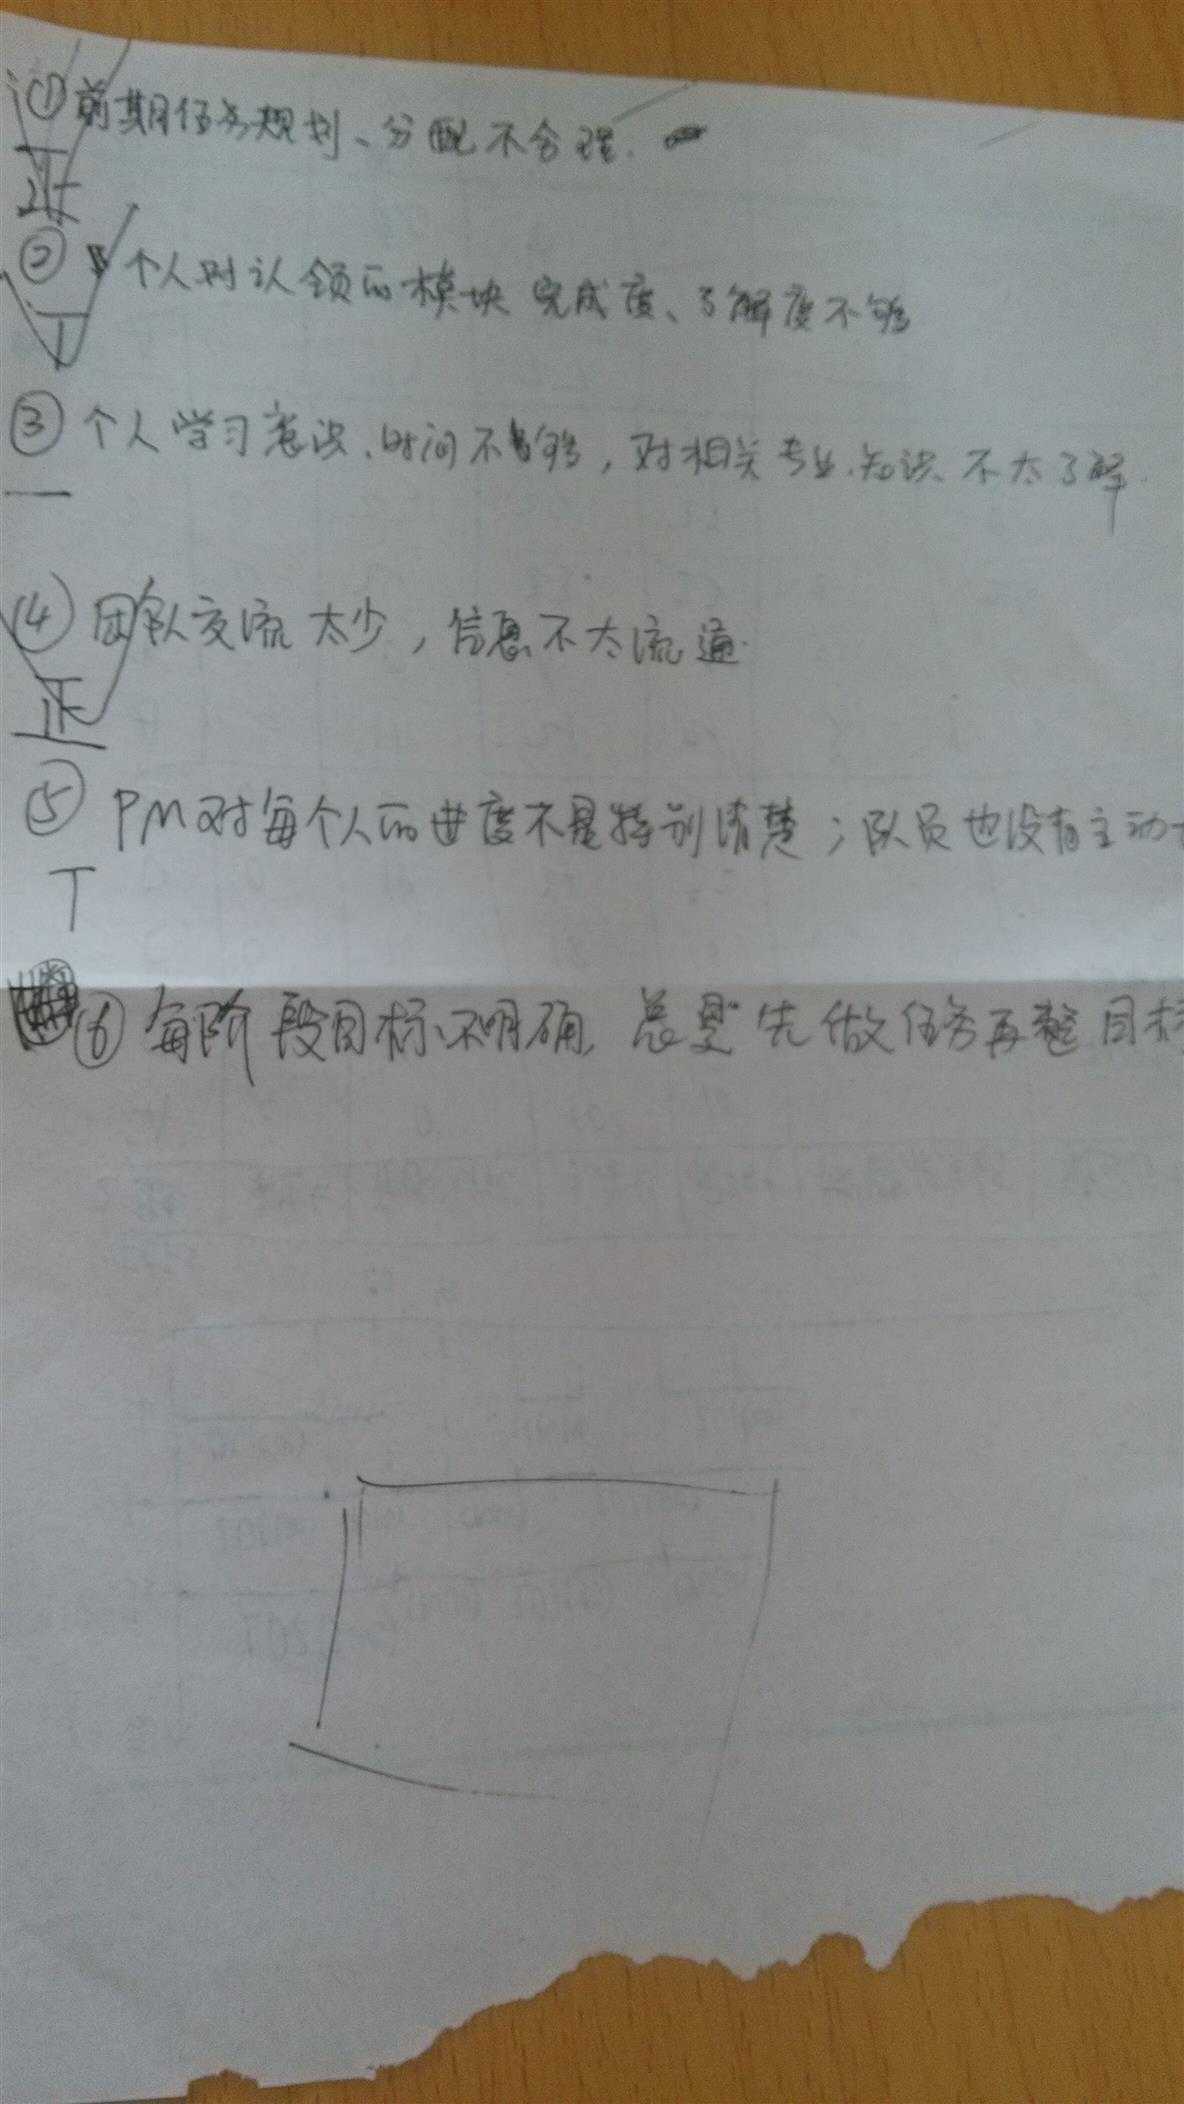 ①前期任务规划、分配不合理.
正
②个人对认领的模块完成度、了解度不够
丅
③个人学习意识、时间不够，对相关专业知识不太了解.
一
④团队交流太少，信息不太流通.
正
⑤PM对每个人的进度不是特别清楚；队员也没有主动
丅
⑥每阶段目标不明确，总是先做任务再整目标